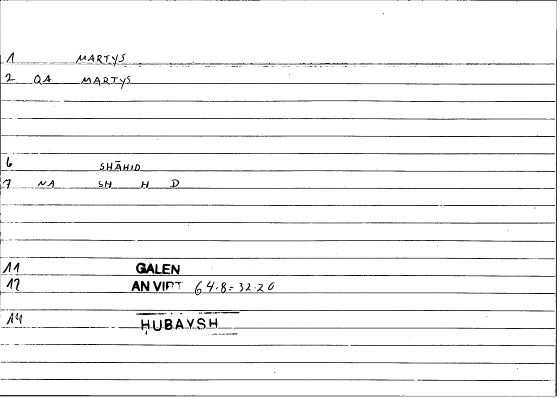 1 MARTYS
2 QA MARTYS
6 SHĀHID
7 NA SH H D
11 GALEN
12 AN VIRT 64.8 = 32.20
14 ḤUBAYSH